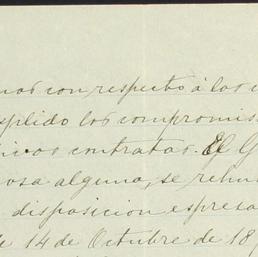 con respecto á los
los compromis
contratos. El G
osa alguna, se rehu
disposicion espresa
de 14 de Octubre de 18